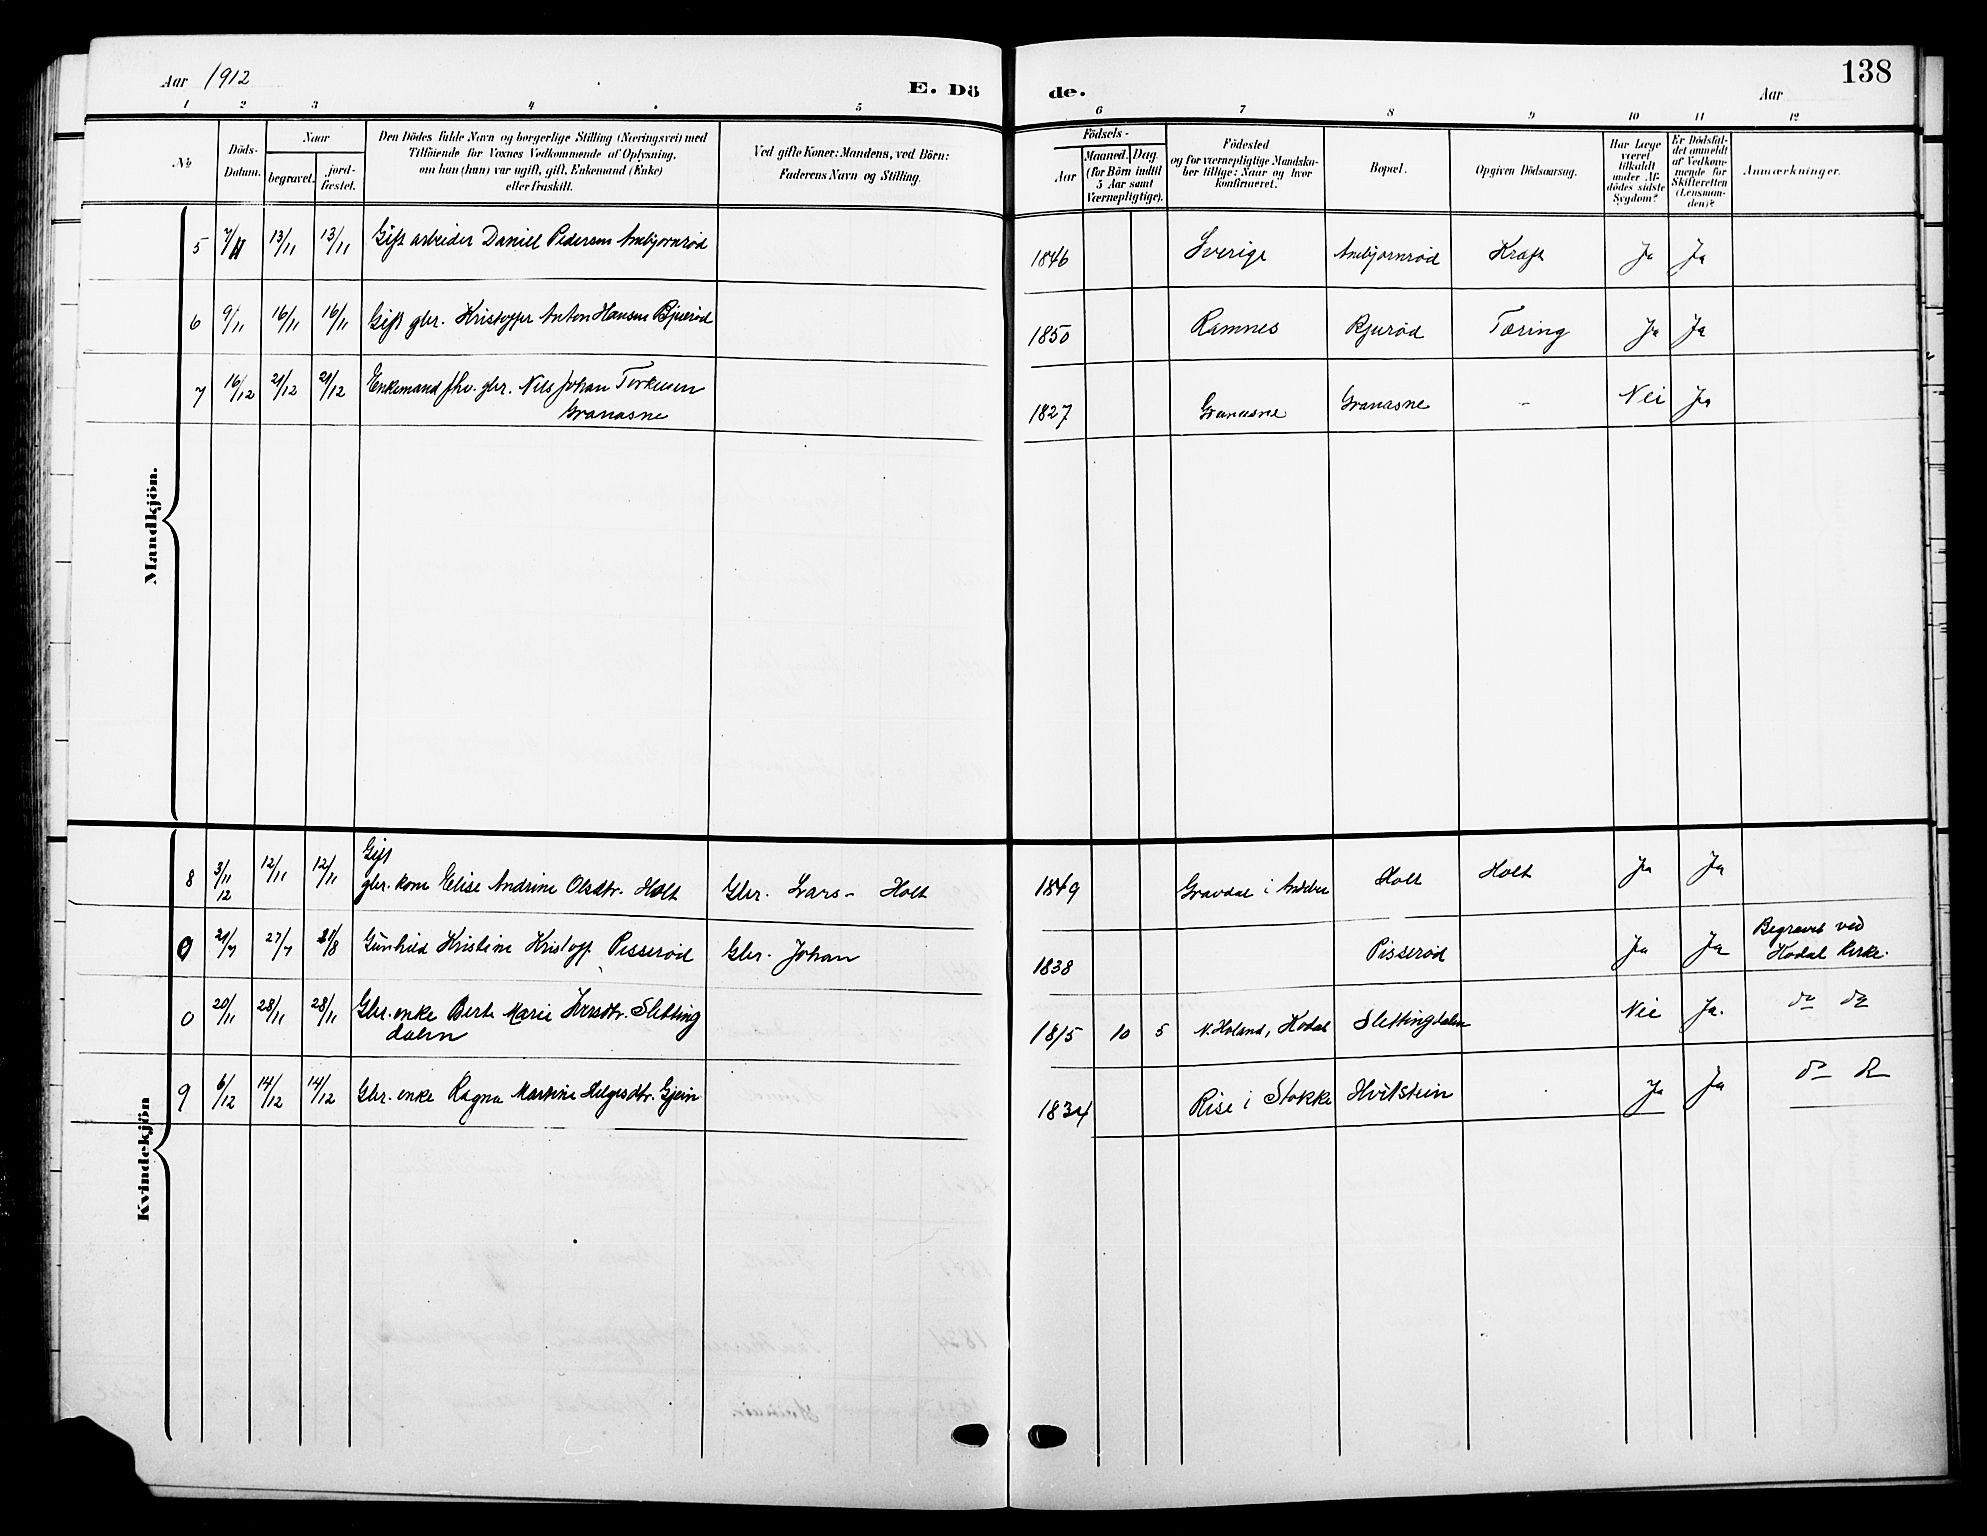 Aar 1912
E. Dö
de.
138
Aar
1 2 3 4 5
6 7 8 9 10 11 12
No
Döds-
Datum.
Naar
begravet.
jord-
fæstet.
Den Dödes fulde Navn og borgerlige Stilling (Næringsvei) med
Tilföiende for Voxnes Vedkommende af Oplysning,
om han (hun) var ugift, gift, Enkemand (Enke)
eller fraskilt.
Ved gifte Koner: Mandens, ved Börn:
Faderens Navn og Stilling.
Födsels-
Aar
Maaned. Dag
(for Börn indtil
5 Aar samt
Værnepligtige).
Födested
og for værnepligtige Mandska-
ber tillige: Naar og hvor
konfirmeret.
Bopæl.
Opgiven Dödsaarsag.
Har Læge
været
tilkaldt
under Af-
dödes sidste
Sygdom?
Er Dödsfal-
det anmeldt
af Vedkom-
mende for
Skifteretten
(Lensman-
den)?
Anmærkninger.
Mandkjön.
5 7/11 13/11 13/11 Gift arbeider Daniel Pedersen Ambjørnrød 1846 Sverige Ambjørnrød Kræft Ja Ja
6 9/11 16/11 16/11 Gift gbr. Kristoffer Anton Hansen Bjuerød 1850 Ramnes Bjuerød Tæring Ja Ja
7 16/12 21/12 21/12 Enkemand fhv. gbr. Nils Johan Terkelsen
Granasne 1827 Granasne Granasne – Nei Ja
Kvindekjön
8 3/11 12 12/11 12/11 Gift
gbr. kone Elise Andrine Olsdtr. Holt Gbr. Lars – Holt 1849 Gravdal i Andebu Holt Holt Ja Ja
0 21/7 27/7 /8 Gunhild Kristine Kristoff. Pisserød Gbr. Johan 1838 Pisserød Ja Ja Begravet ved
Kodal kirke.
0 20/11 28/11 28/11 Gbr. enke Berte Marie Iversdtr. Sletting
dalen 1815 10 5 N. Holand, Kodal Slettingdalen Nei Ja. do do
9 6/12 14/12 14/12 Gbr. enke Ragna Martine Helgesdtr. Gjein 1834 Rise i Stokke Hvitstein Ja Ja do do